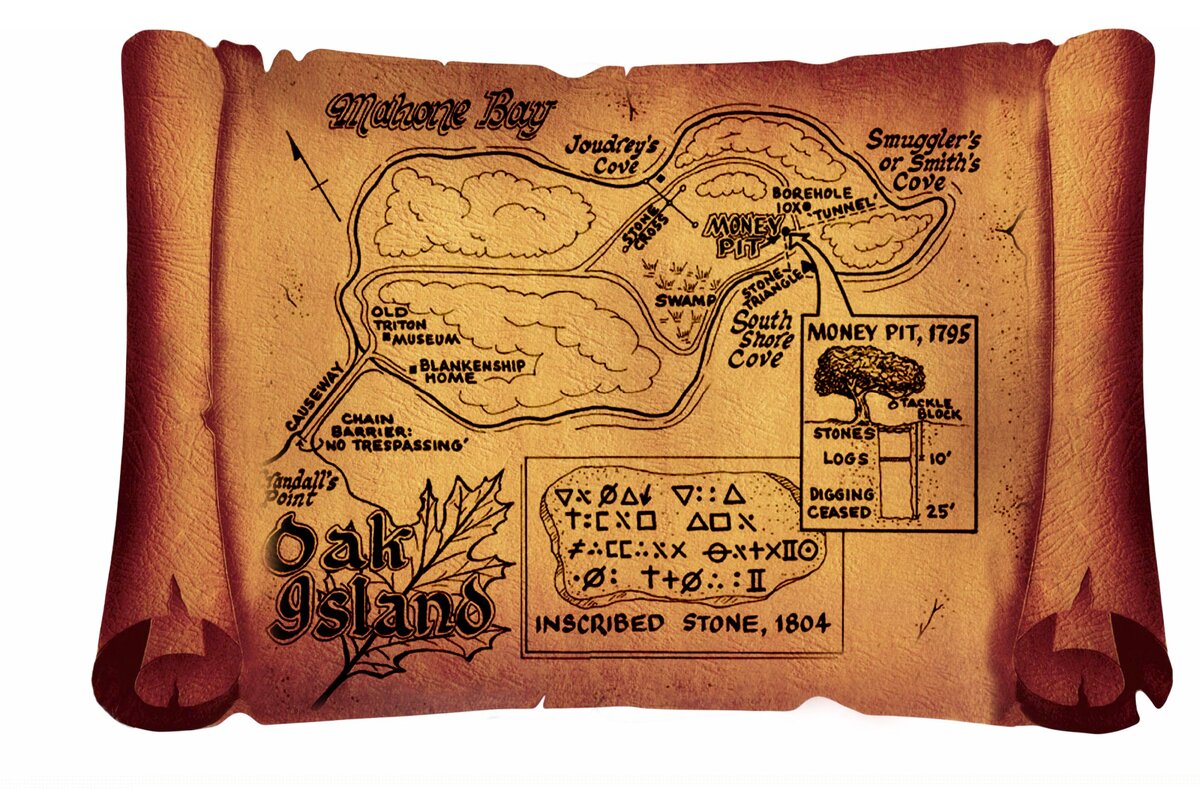 Mahone Bay
Joudrey's
Cove
Smuggler's
or Smith's
Cove
BOREHOLE
10X
'TUNNEL'
STONE
CROSS
MONEY
PIT
STONE
TRIANGLE
SWAMP
South
Shore
Cove
OLD
TRITON
MUSEUM
BLANKENSHIP
HOME
CAUSEWAY
CHAIN
BARRIER:
'NO TRESPASSING'
Crandall's
Point
MONEY PIT, 1795
TACKLE
BLOCK
STONES
LOGS
10'
DIGGING
CEASED
25'
Oak
Island
INSCRIBED STONE, 1804